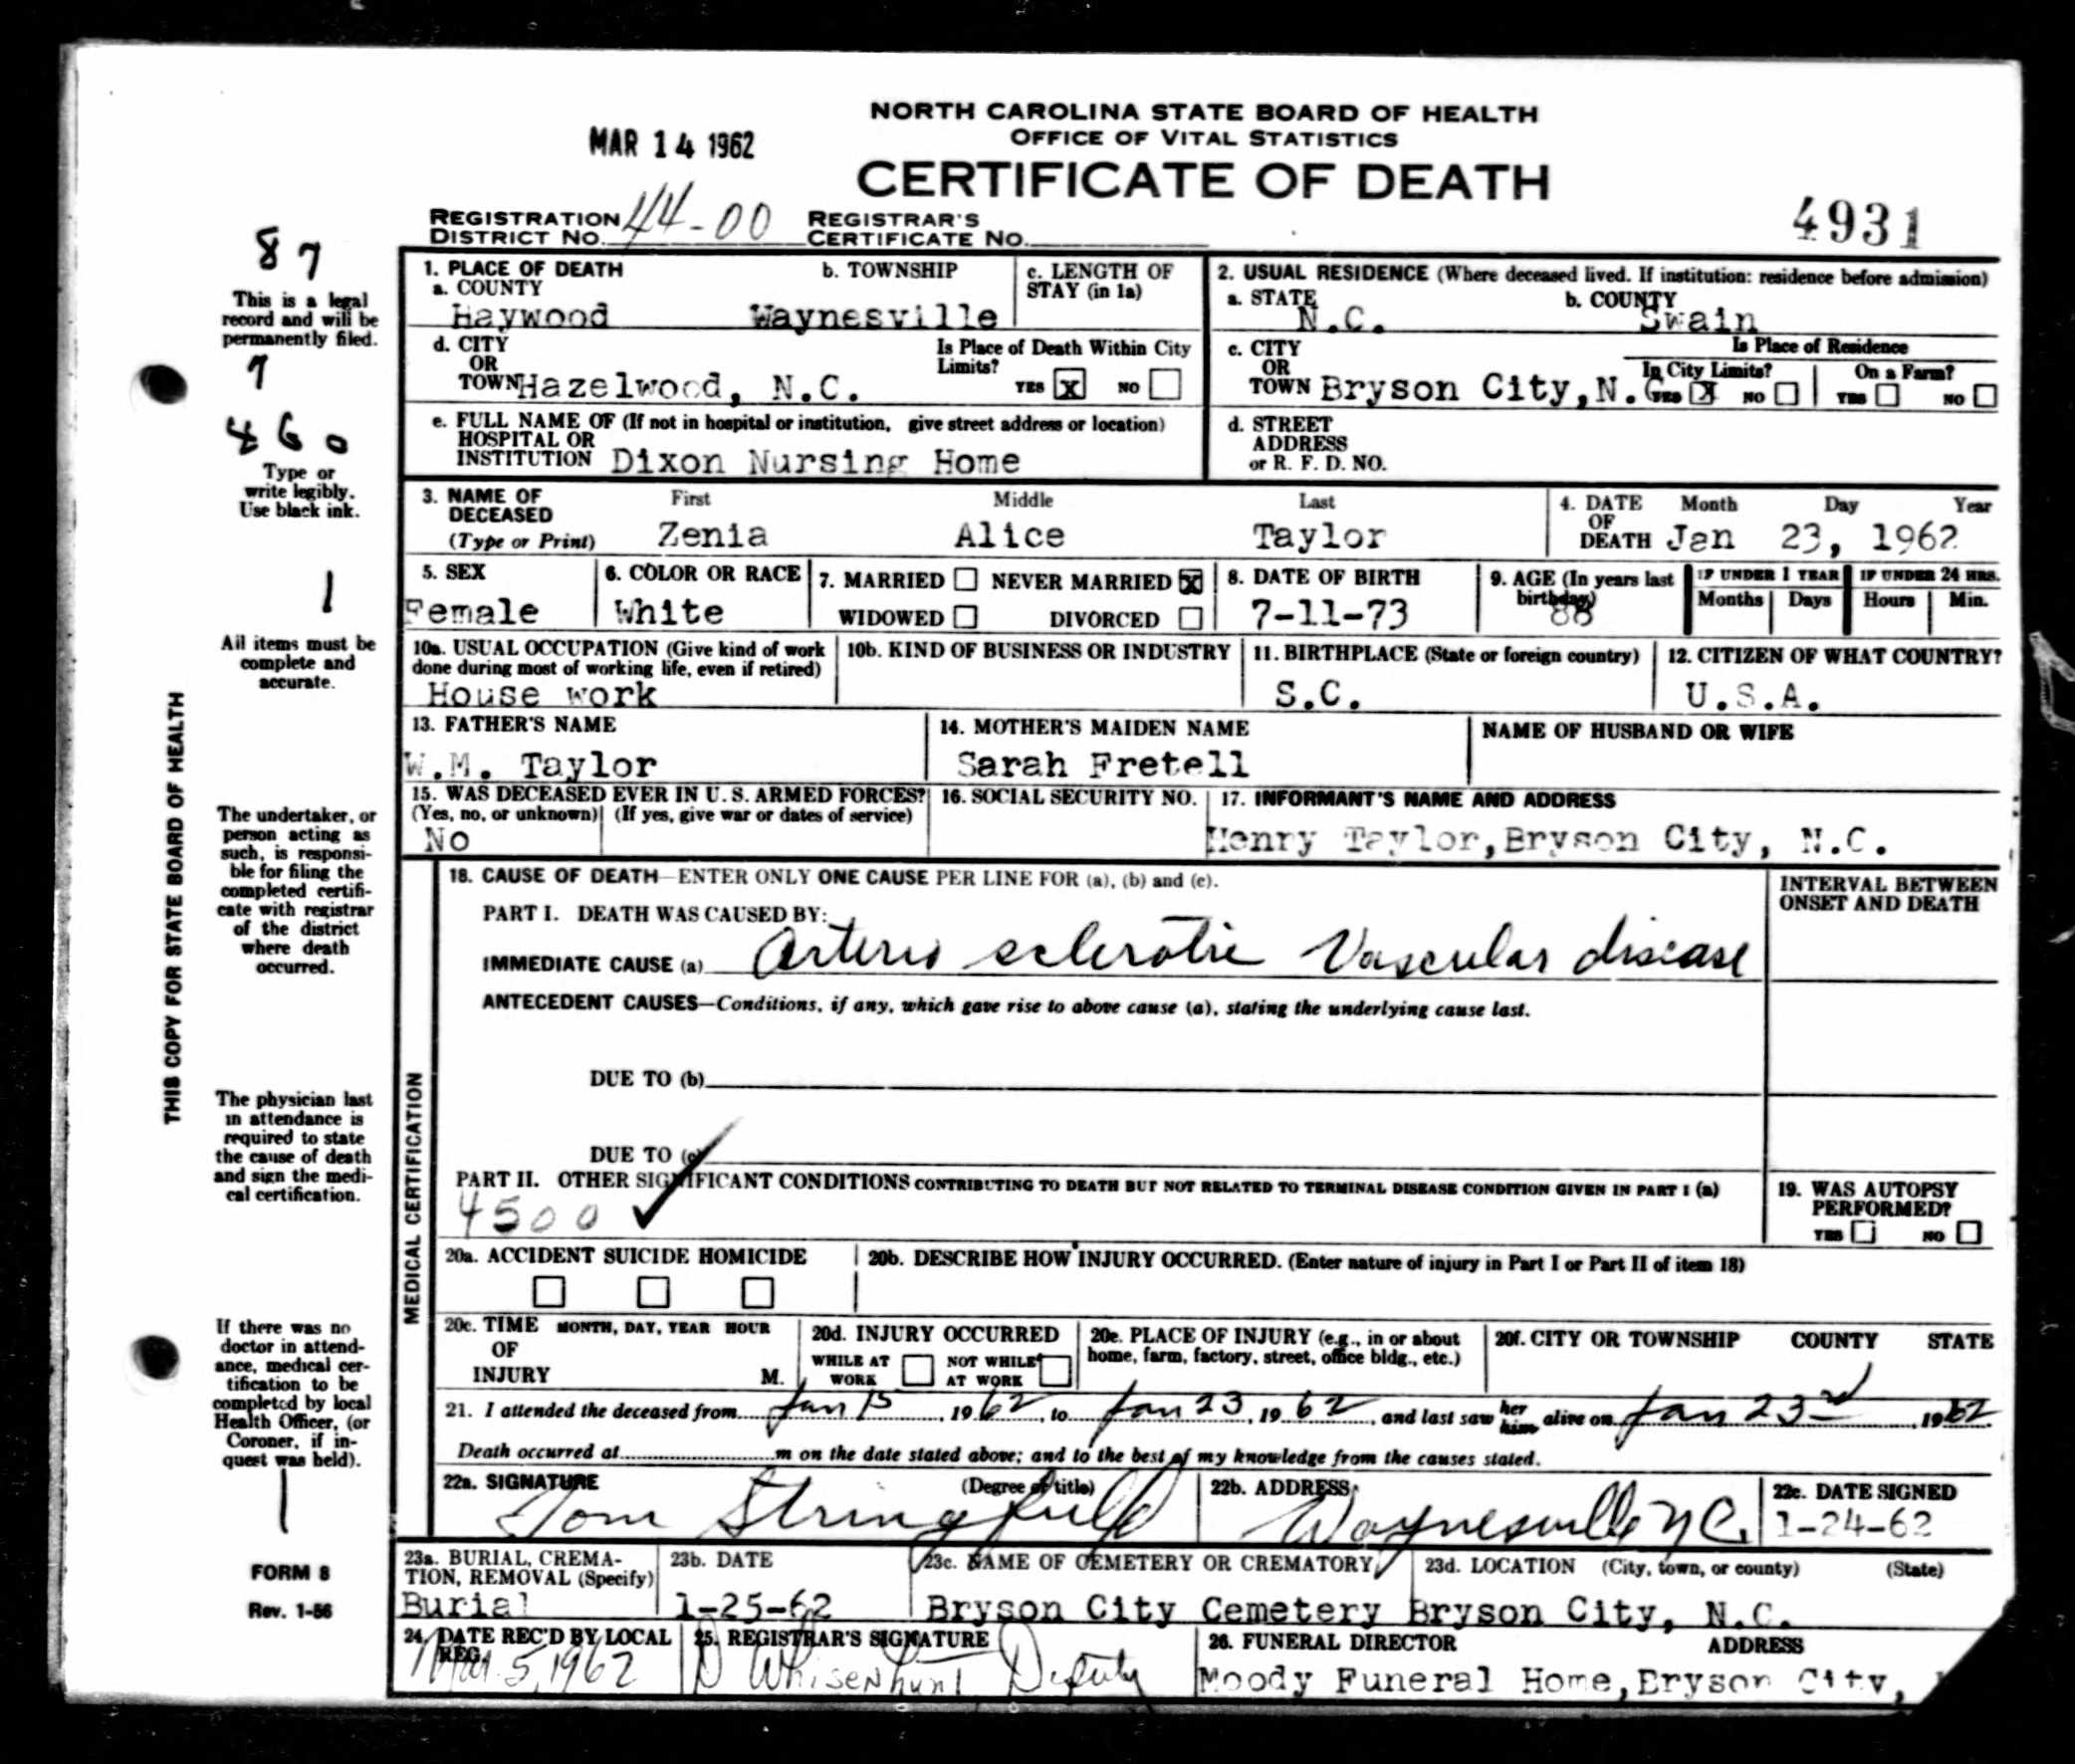 NORTH CAROLINA STATE BOARD OF HEALTH
OFFICE OF VITAL STATISTICS
MAR 14 1962
CERTIFICATE OF DEATH
REGISTRATION DISTRICT NO. 44-00 REGISTRAR'S CERTIFICATE NO.
4931
87
This is a legal record and will be permanently filed.
9
460
Type or write legibly. Use black ink.
1
All items must be complete and accurate.
THIS COPY FOR STATE BOARD OF HEALTH
The undertaker, or person acting as such, is responsible for filing the completed certificate with registrar of the district where death occurred.
The physician last in attendance is required to state the cause of death and sign the medical certification.
If there was no doctor in attendance, medical certification to be completed by local Health Officer, (or Coroner, if inquest was held).
FORM 8
Rev. 1-56
1. PLACE OF DEATH
a. COUNTY Haywood
b. TOWNSHIP Waynesville
c. LENGTH OF STAY (in 1a)
2. USUAL RESIDENCE (Where deceased lived. If institution: residence before admission)
a. STATE N.C.
b. COUNTY Swain
d. CITY OR TOWN Hazelwood, N.C.
Is Place of Death Within City Limits? YES X NO
c. CITY OR TOWN Bryson City, N.C.
Is Place of Residence
In City Limits? YES X NO
On a Farm? YES NO
e. FULL NAME OF (If not in hospital or institution, give street address or location)
HOSPITAL OR INSTITUTION Dixon Nursing Home
d. STREET ADDRESS or R. F. D. NO.
3. NAME OF DECEASED (Type or Print)
First Middle Last
Zenia Alice Taylor
4. DATE OF DEATH Month Day Year
Jan 23, 1962
5. SEX
Female
6. COLOR OR RACE
White
7. MARRIED NEVER MARRIED X
WIDOWED DIVORCED
8. DATE OF BIRTH
7-11-73
9. AGE (In years last birthday)
88
IF UNDER 1 YEAR
Months Days
IF UNDER 24 HRS.
Hours Min.
10a. USUAL OCCUPATION (Give kind of work done during most of working life, even if retired)
House work
10b. KIND OF BUSINESS OR INDUSTRY
11. BIRTHPLACE (State or foreign country)
S.C.
12. CITIZEN OF WHAT COUNTRY?
U.S.A.
13. FATHER'S NAME
W.M. Taylor
14. MOTHER'S MAIDEN NAME
Sarah Fretell
NAME OF HUSBAND OR WIFE
15. WAS DECEASED EVER IN U.S. ARMED FORCES?
(Yes, no, or unknown) (If yes, give war or dates of service)
No
16. SOCIAL SECURITY NO.
17. INFORMANT'S NAME AND ADDRESS
Henry Taylor, Bryson City, N.C.
MEDICAL CERTIFICATION
18. CAUSE OF DEATH—ENTER ONLY ONE CAUSE PER LINE FOR (a), (b) and (c).
INTERVAL BETWEEN ONSET AND DEATH
PART I. DEATH WAS CAUSED BY:
IMMEDIATE CAUSE (a) Arterio sclerotic Vascular disease
ANTECEDENT CAUSES—Conditions, if any, which gave rise to above cause (a), stating the underlying cause last.
DUE TO (b)
DUE TO (c)
PART II. OTHER SIGNIFICANT CONDITIONS CONTRIBUTING TO DEATH BUT NOT RELATED TO TERMINAL DISEASE CONDITION GIVEN IN PART I (a)
4500
19. WAS AUTOPSY PERFORMED?
YES NO
20a. ACCIDENT SUICIDE HOMICIDE
20b. DESCRIBE HOW INJURY OCCURRED. (Enter nature of injury in Part I or Part II of item 18)
20c. TIME OF INJURY MONTH, DAY, YEAR HOUR M.
20d. INJURY OCCURRED
WHILE AT WORK NOT WHILE AT WORK
20e. PLACE OF INJURY (e.g., in or about home, farm, factory, street, office bldg., etc.)
20f. CITY OR TOWNSHIP COUNTY STATE
21. I attended the deceased from Jan 15, 1962, to Jan 23, 1962, and last saw her him alive on Jan 23rd, 1962.
Death occurred at m on the date stated above; and to the best of my knowledge from the causes stated.
22a. SIGNATURE (Degree or title)
Tom Stringfield
22b. ADDRESS
Waynesville N.C.
22c. DATE SIGNED
1-24-62
23a. BURIAL, CREMATION, REMOVAL (Specify)
Burial
23b. DATE
1-25-62
23c. NAME OF CEMETERY OR CREMATORY
Bryson City Cemetery
23d. LOCATION (City, town, or county) (State)
Bryson City, N.C.
24. DATE REC'D BY LOCAL REG.
Mar. 5, 1962
25. REGISTRAR'S SIGNATURE
Whisenhunt Deputy
26. FUNERAL DIRECTOR ADDRESS
Moody Funeral Home, Bryson City,